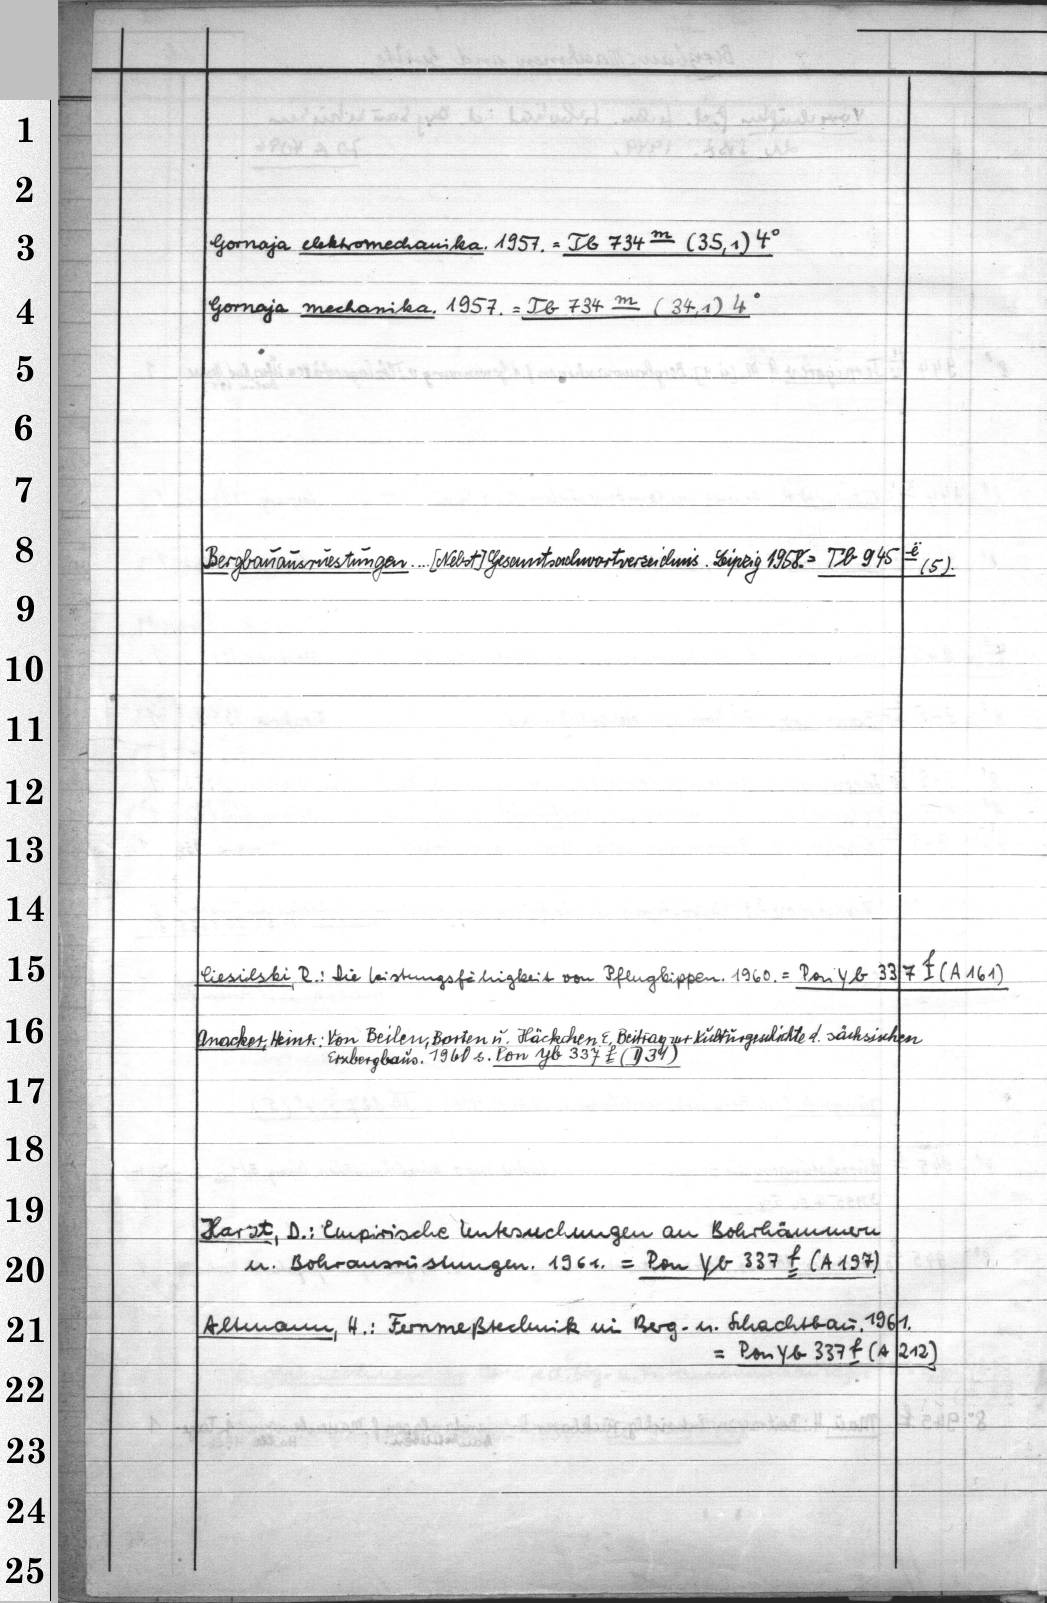 1
2
3 Gornaja elektromechanika. 1957. = Tb 734 m (35,1) 4°
4 Gornaja mechanika. 1957. = Tb 734 m (34,1) 4°
5
6
7
8 Bergbauausruestungen .... [Nebst] Gesamtsachwortverzeichnis. Leipzig 1958. = Tb 945 ë (5).
9
10
11
12
13
14
15 Ciesilski, R.: Die Leistungsfähigkeit von Pflugkippen. 1960. = Pon Yb 337 f (A 161)
16 Anacker, Heinr.: Von Beilen, Barten u. Häckchen. E. Beitrag zur Kulturgeschichte d. sächsischen
Erzbergbaus. 1960 s. Pon Yb 337 f (D 34)
17
18
19 Harzt, D.: Empirische Untersuchungen an Bohrhämmern
20 u. Bohrausrüstungen. 1961. = Pon Yb 337 f (A 197)
21 Altmann, H.: Fernmeßtechnik im Berg- u. Schachtbau. 1961.
= Pon Yb 337 f (A 212)
22
23
24
25